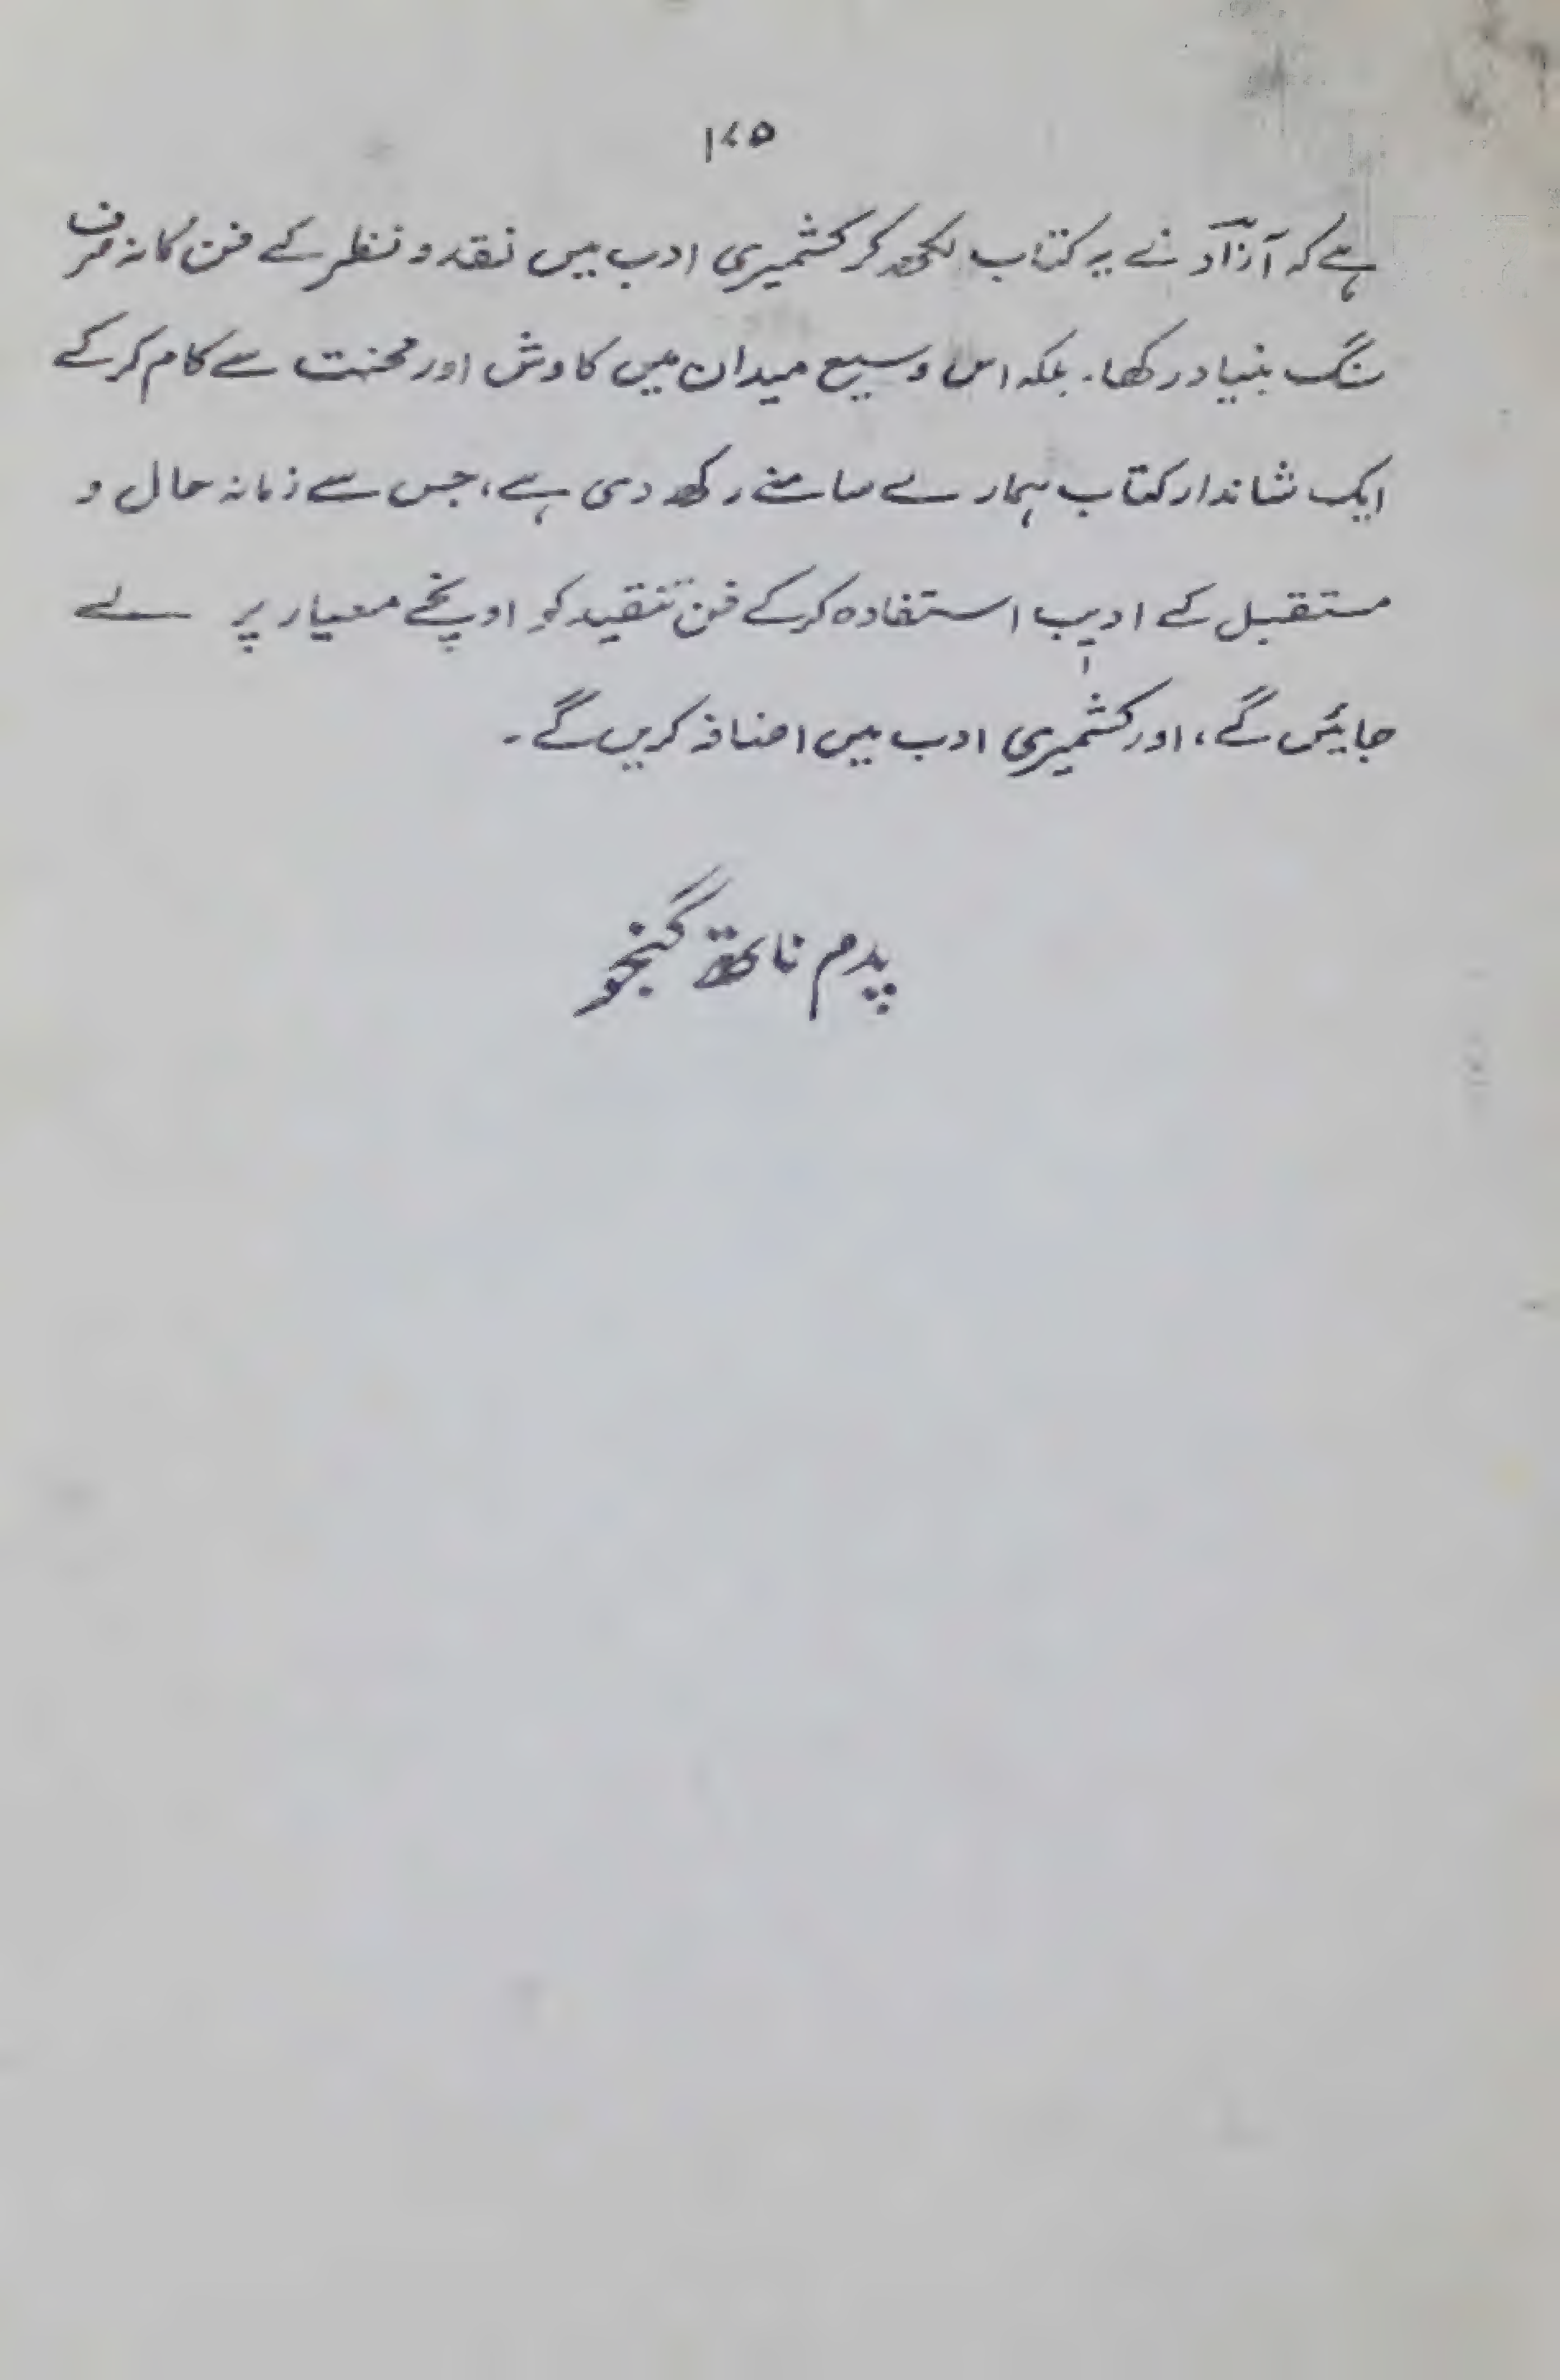 ۱۷۵
ہے کہ آزاد نے یہ کتاب لکھ کر کشمیری ادب میں نقد و نظر کے فن کا نہ صرف
سنگ بنیاد رکھا۔ بلکہ اس وسیع میدان میں کاوش اور محنت سے کام کرکے
ایک شاندار کتاب ہمارے سامنے رکھ دی ہے، جس سے زمانہ حال و
مستقبل کے ادیب استفادہ کرکے فن تنقید کو اونچے معیار پر لے
جائیں گے، اور کشمیری ادب میں اضافہ کریں گے۔
پدم ناتھ گنجو